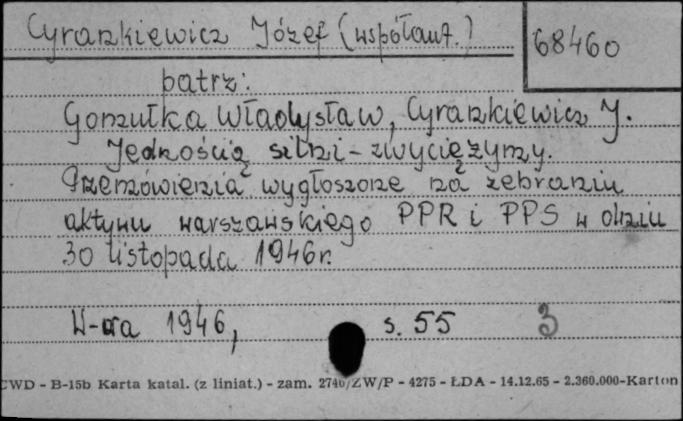 Cyrankiewicz Józef (współaut.)
68460
patrz:
Gomułka Władysław, Cyrankiewicz J.
Jednością silni - zwyciężymy.
Przemówienia wygłoszone na zebraniu
aktywu warszawskiego PPR i PPS w dniu
30 listopada 1946r.
W-wa 1946, s. 55 3
CWD - B-15b Karta katal. (z liniat.) - zam. 2740/ZW/P - 4275 - ŁDA - 14.12.65 - 2.360.000-Karton